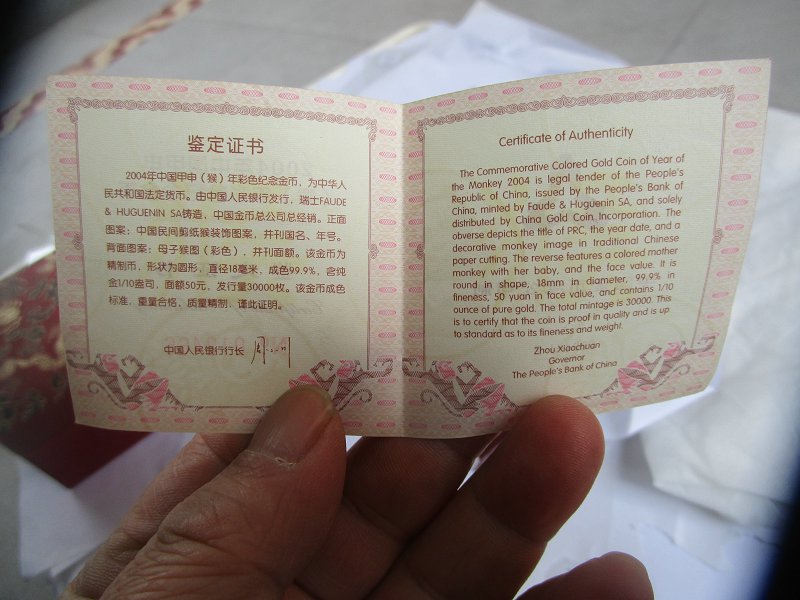 鉴定证书
2004年中国甲申（猴）年彩色纪念金币，为中华人
民共和国法定货币。由中国人民银行发行，瑞士FAUDE
& HUGUENIN SA铸造，中国金币总公司总经销。正面
图案：中国民间剪纸猴装饰图案，并刊国名、年号。
背面图案：母子猴图（彩色），并刊面额。该金币为
精制币，形状为圆形，直径18毫米，成色99.9%，含纯
金1/10盎司，面额50元，发行量30000枚。该金币成色
标准，重量合格，质量精制，谨此证明。
中国人民银行行长
Certificate of Authenticity
The Commemorative Colored Gold Coin of Year of
the Monkey 2004 is legal tender of the People's
Republic of China, issued by the People's Bank of
China, minted by Faude & Huguenin SA, and solely
distributed by China Gold Coin Incorporation. The
obverse depicts the title of PRC, the year date, and a
decorative monkey image in traditional Chinese
paper cutting. The reverse features a colored mother
monkey with her baby, and the face value. It is
round in shape, 18mm in diameter, 99.9% in
fineness, 50 yuan in face value, and contains 1/10
ounce of pure gold. The total mintage is 30000. This
is to certify that the coin is proof in quality and is up
to standard as to its fineness and weight.
Zhou Xiaochuan
Governor
The People's Bank of China